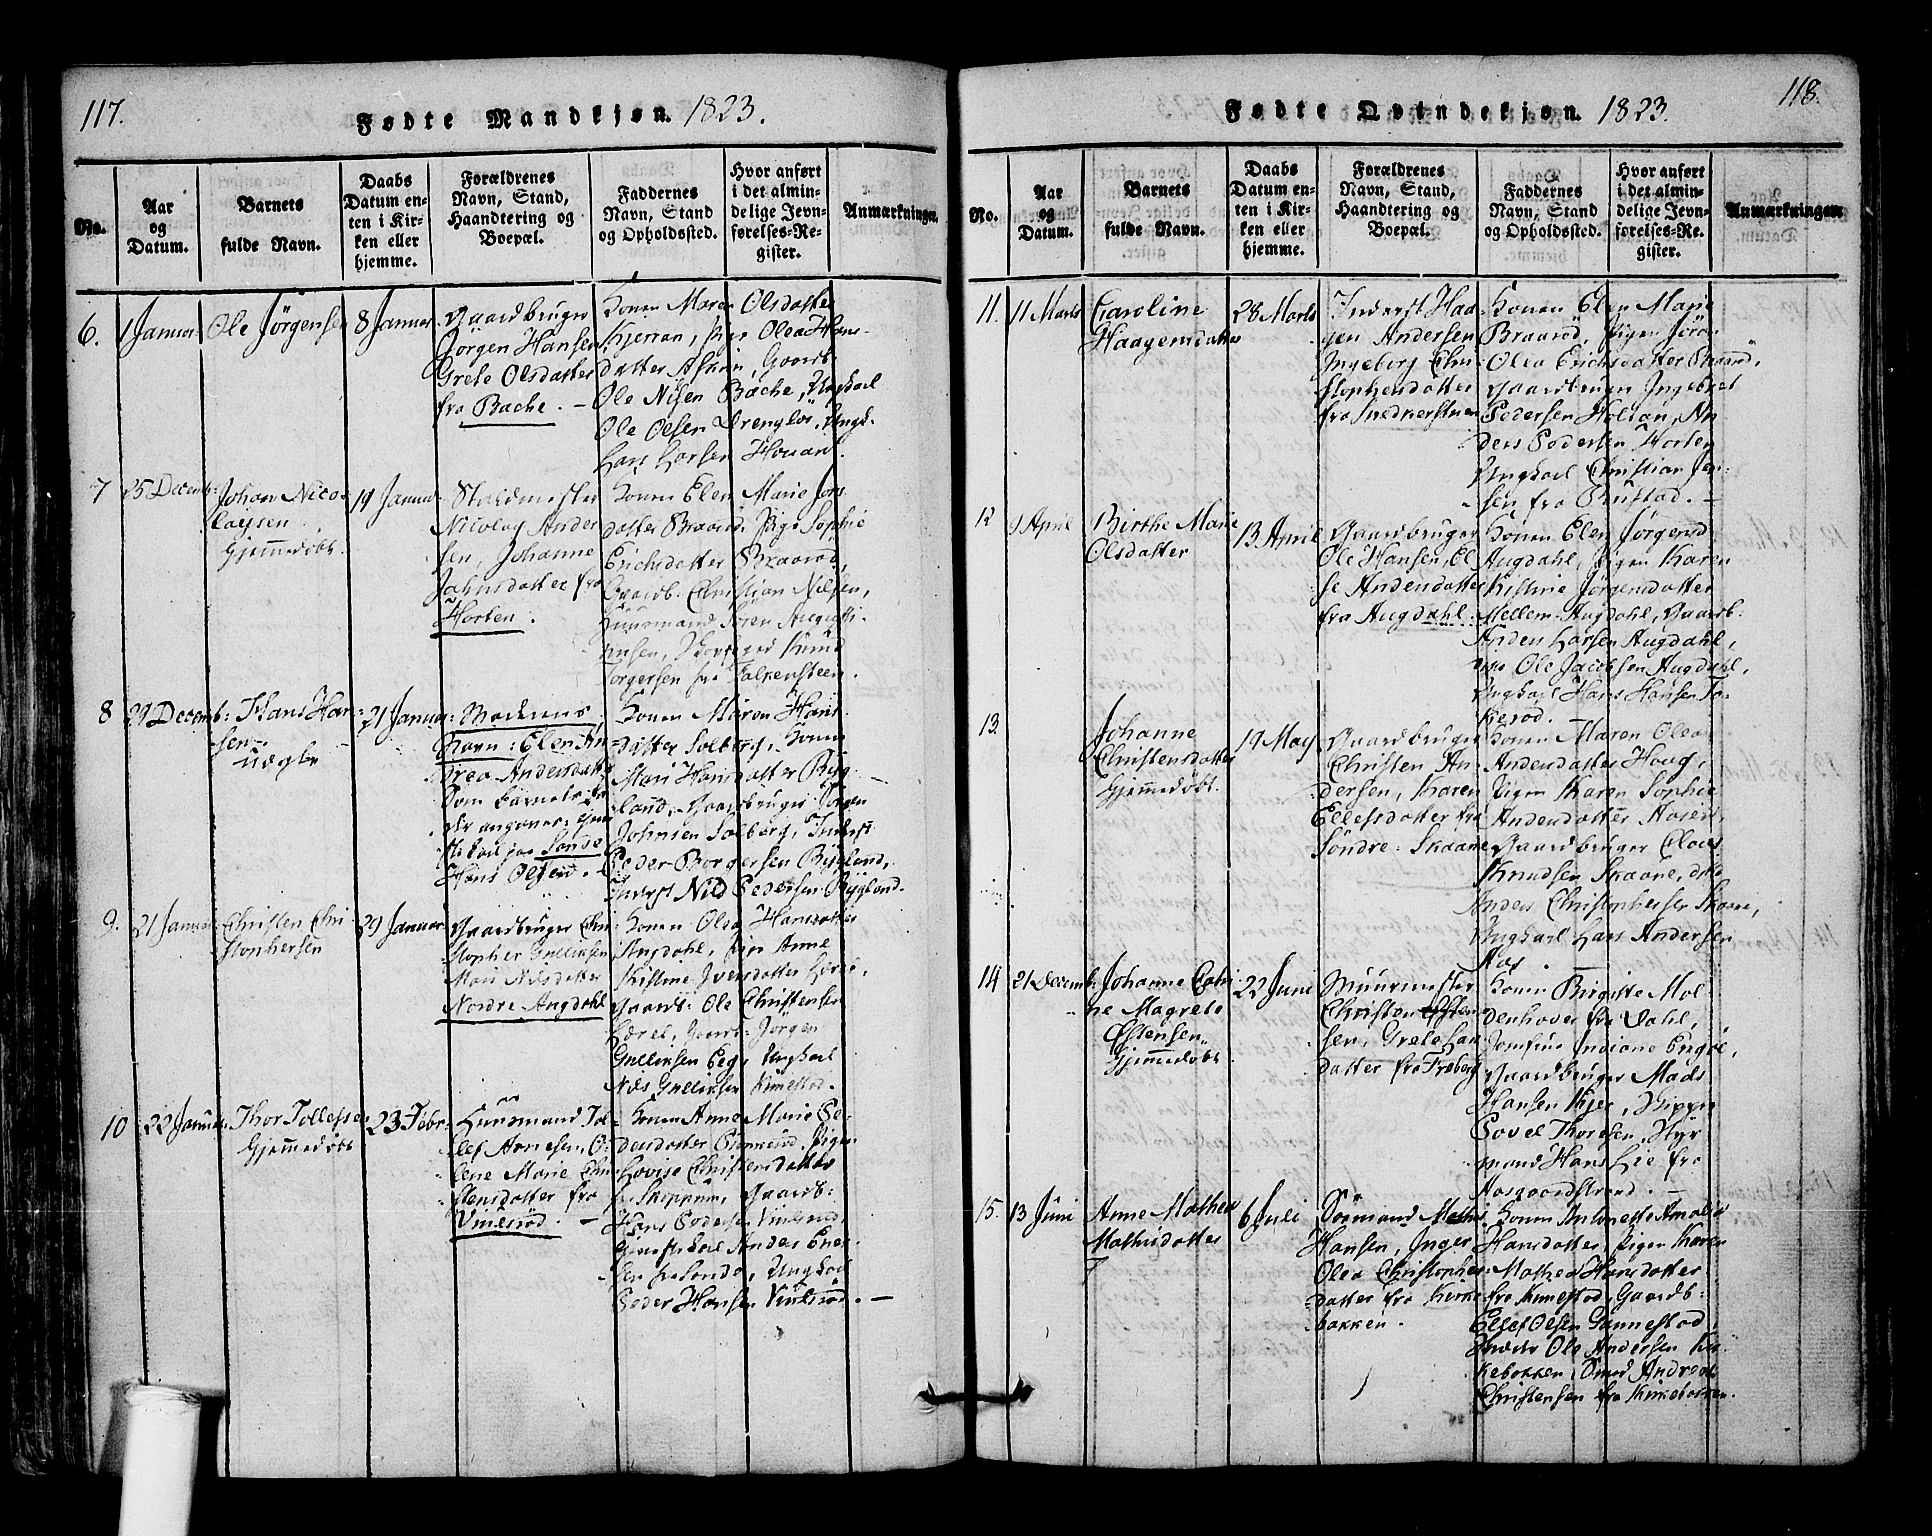 117.
Fødte Mandkjøn. 1823.
No.
Aar
og
Datum.
Barnets
fulde Navn.
Daabs
Datum en-
ten i Kir-
ken eller
hjemme.
Forældrenes
Navn, Stand,
Haandtering og
Boepæl.
Faddernes
Navn, Stand
og Opholdssted.
Hvor anført
i det almin-
delige Jevn-
førelses-Re-
gister.
Anmærkninger.
6.
1 Januar
Ole Jörgensen
8 Januar
Gaardbruger
Jörgen Hansen
Grete Olsdatter
fra Bache.
Konen Maren Olsdatter
Kjerran, Pige Olea Hans-
datter Askim, Gaardb.
Ole Nilsen Bache, Ungkarl
Ole Olsen Drenglös, Ungk.
Lars Larsen Houan
7
25 Decemb:
Johan Nico-
laysen
Hjemmedöbt.
19 Januar
Staldmester
Nicolay Ander
sen, Johanne
Jahnsdatter fra
Horten.
Konen Elen Marie Jörs
datter Braaröd, Pige Sophie
Erichsdatter Braaröd,
Gaardb. Christian Nilsen,
Huusmand Sören Augusti-
nusen, Knud
Torgersen fra Falkensteen.
8
29 Decemb:
Hans Han-
sen
Uægte
21 Januar
Modrens
Navn: Elen An
drea Andersdatter
Som Barnets Fa
der angiver:
Sonde
Hans Olsen.
Konen Maren Hans
datter Solberg, Konen
Mari Hansdatter Byg
land, Gaardbruger Jörgen
Johnsen Solberg, Inderst
Peder Borgersen Bygland,
Inderst Nils Pedersen Bygland.
9.
21 Januar
Christen Chri
stophersen
29 Januar
Gaardbruger Chri
stopher Gulliksen
Mari Nilsdatter
Nordre Augdahl
Konen Olea Hansdatter
Augdahl, Pige Anne
Kistine Iversdatter
Gaardb: Ole Christensen
Gaardb: Jörgen
Gullichsen Eeg, Ungkarl
Nils Gullichsen Kimestad.
10
22 Januar
Thor Tollefsen
Hjemmedöbt
23 Febr.
Huusmand Tol
lef Arnesen, O-
lene Marie Chri
stensdatter fra
Vindsröd.
Konen Anne Marie Pe-
dersdatter Pigen
Lovise Christensdatter
fr Skoppum, Gaardb-
Hans Pedersen
Anders
sen fra Sonde, Ungkarl
Peder Hansen Vindsröd.
118.
Fødte Qvindekjøn. 1823.
No.
Aar
og
Datum.
Barnets
fulde Navn.
Daabs
Datum en-
ten i Kir-
ken eller
hjemme.
Forældrenes
Navn, Stand,
Haandtering og
Boepæl.
Faddernes
Navn, Stand
og Opholdssted.
Hvor anført
i det almin-
delige Jevn-
førelses-Re-
gister.
Anmærkninger.
11.
11 Marts
Caroline
Haagensdatter
28 Marts
Inderst Haa
gen Andersen
Ingeborg Chri
stophersdatter
fra Snedkerstuen
Konen Elen Marie
Braaröd, Pigen Jöran
Olea Erichsdatter
Gaardbruger Ingebret
Pedersen Holtan, An
ders Pedersen Horten
Ungkarl Christian Jen-
sen fra Rustad.
12
9 April
Birthe Marie
Olsdatter
13 April
Gaardbruger
Ole Hansen, El
se Andersdatter
fra Augdahl.
Konen Elen Jörgensd
Augdahl, Pigen Karen
Kistine Jörgensdatter
Mellem-Augdahl, Gaardb.
Anders Larsen Augdahl,
Ole Jacobsen Augdahl,
Ungkarl Hans Hansen To-
keröd.
13.
Johanne
Christensdatter
Hjemmedöbt.
19 May
Gaardbruger
Christen An
dersen, Karen
Ellefsdatter fra
Söndre-Skaane
Konen Maren Olea
Andersdatter Houg,
Pigen Karen Sophie
Andersdatter
Gaardbruger Claus
Knudsen Skaane, dito
Anders Christophersen Skaane,
Ungkarl Lars Andersen
Aas.
14
21 Decemb:
Johanne Cathri
ne Magrete
Östensen
Hjemmedöbt
22 Juni
Muurmester
Christen Östen
sen, Grete Lars
datter fra Freberg
Konen Birgitte Mol
denhover fra Dahl,
Jomfrue Indiane Engöe,
Gaardbruger Mads
Hansen Kjær, Skipper
Povel Thoresen, Styr
mand Hans Lie fra
Aasgaardstrand.
15.
13 Juni
Anne Mathea
Mathisdatter
6 Juli
Söemand Mathis
Hansen, Inger
Olea Christophers-
datter fra Kirke
bakken.
Konen Antonette Amalia
Hansdatter, Pigen Karen
Mathea Hansdatter
fra Kimestad, Gaardb:
Ellef Olsen Gannestad,
Ole Andersen Kir
kebakken, Andreas
Christensen fra Kirkebakken.